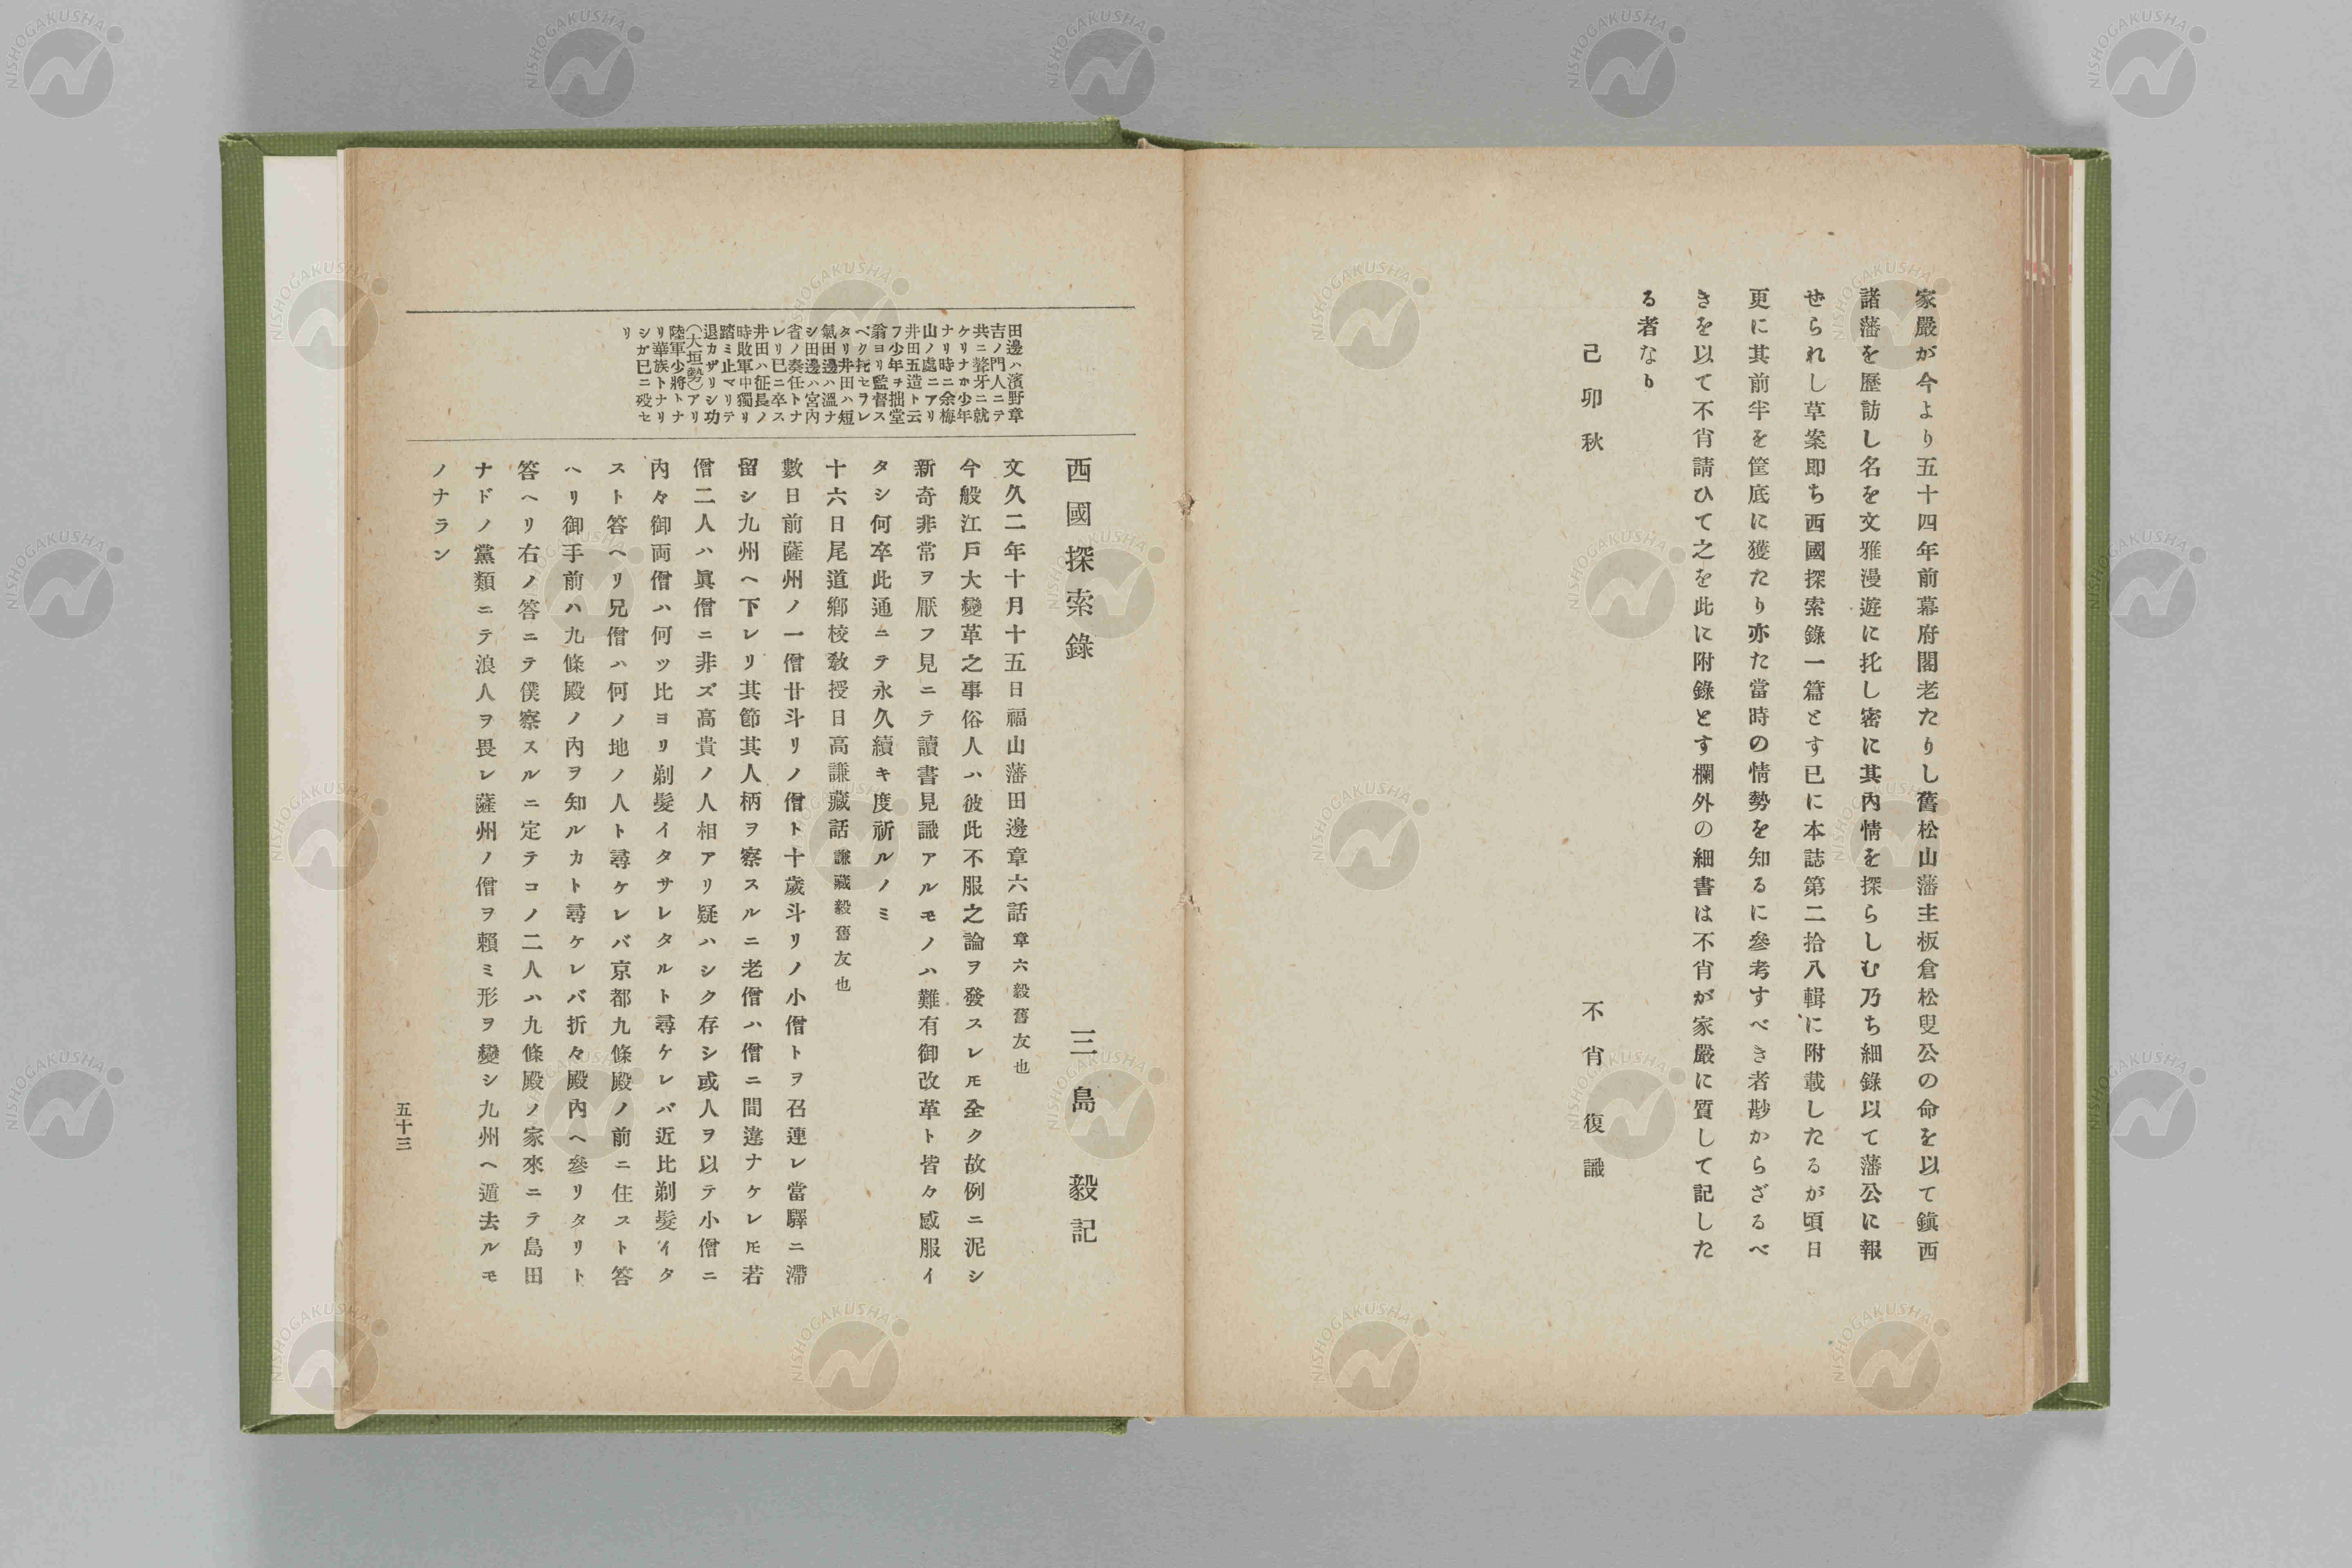 家嚴が今より五十四年前幕府閣老たりし舊松山藩主板倉松叟公の命を以て鎭西
諸藩を歷訪し名を文雅漫遊に托し密に其內情を探らしむ乃ち細錄以て藩公に報
せられし草案卽ち西國探索錄一篇とす已に本誌第二拾八輯に附載したるが頃日
更に其前半を筐底に獲たり亦た當時の情勢を知るに參考すべき者尠からざるべ
きを以て不肖請ひて之を此に附錄とす欄外の細書は不肖が家嚴に質して記した
る者なり
己卯秋
不肖 復識
田邊ハ濱野章
吉ノ門人ニテ
共ニ聱牙ニ就
ケリナホ少年
ナリ時ニ余梅
山ノ處ニアリ
井田五造ト云
フ少年ヲ拙堂
翁ヨリ監督ス
ベク托セラレ
タリ井田ハ短
氣田邊ハ溫ナ
シ田邊ハ宮內
省ノ奏任トナ
レリ已ニ卒ス
井田ハ征長ノ
時敗軍中獨リ
踏ミ止マリテ
退カザリシ功
(大垣勢)アリ
陸軍少將トナ
リ華族トナリ
シガ已ニ歿セ
リ
西國探索錄
三島 毅記
文久二年十月十五日福山藩田邊章六話 章六毅舊友也
今般江戶大變革之事俗人ハ彼此不服之論ヲ發スレ𪜈全ク故例ニ泥シ
新奇非常ヲ厭フ見ニテ讀書見識アルモノハ難有御改革ト皆々感服イ
タシ何卒此通ニテ永久續キ度祈ルノミ
十六日尾道鄕校敎授日高謙藏話 謙藏毅舊友也
數日前薩州ノ一僧廿斗リノ僧ト十歲斗リノ小僧トヲ召連レ當驛ニ滯
留シ九州ヘ下レリ其節其人柄ヲ察スルニ老僧ハ僧ニ間違ナケレ𪜈若
僧二人ハ眞僧ニ非ズ高貴ノ人相アリ疑ハシク存シ或人ヲ以テ小僧ニ
內々御兩僧ハ何ッ比ヨリ剃髮イタサレタルト尋ケレバ近比剃髮イタ
スト答ヘリ兄僧ハ何ノ地ノ人ト尋ケレバ京都九條殿ノ前ニ住スト答
ハリ御手前ハ九條殿ノ內ヲ知ルカト尋ケレバ折々殿內ヘ參リタリト
答ヘリ右ノ答ニテ僕察スルニ定テコノ二人ハ九條殿ノ家來ニテ島田
ナドノ黨類ニテ浪人ヲ畏レ薩州ノ僧ヲ賴ミ形ヲ變シ九州ヘ遁去ルモ
ノナラン
五十三
NISHOGAKUSHA